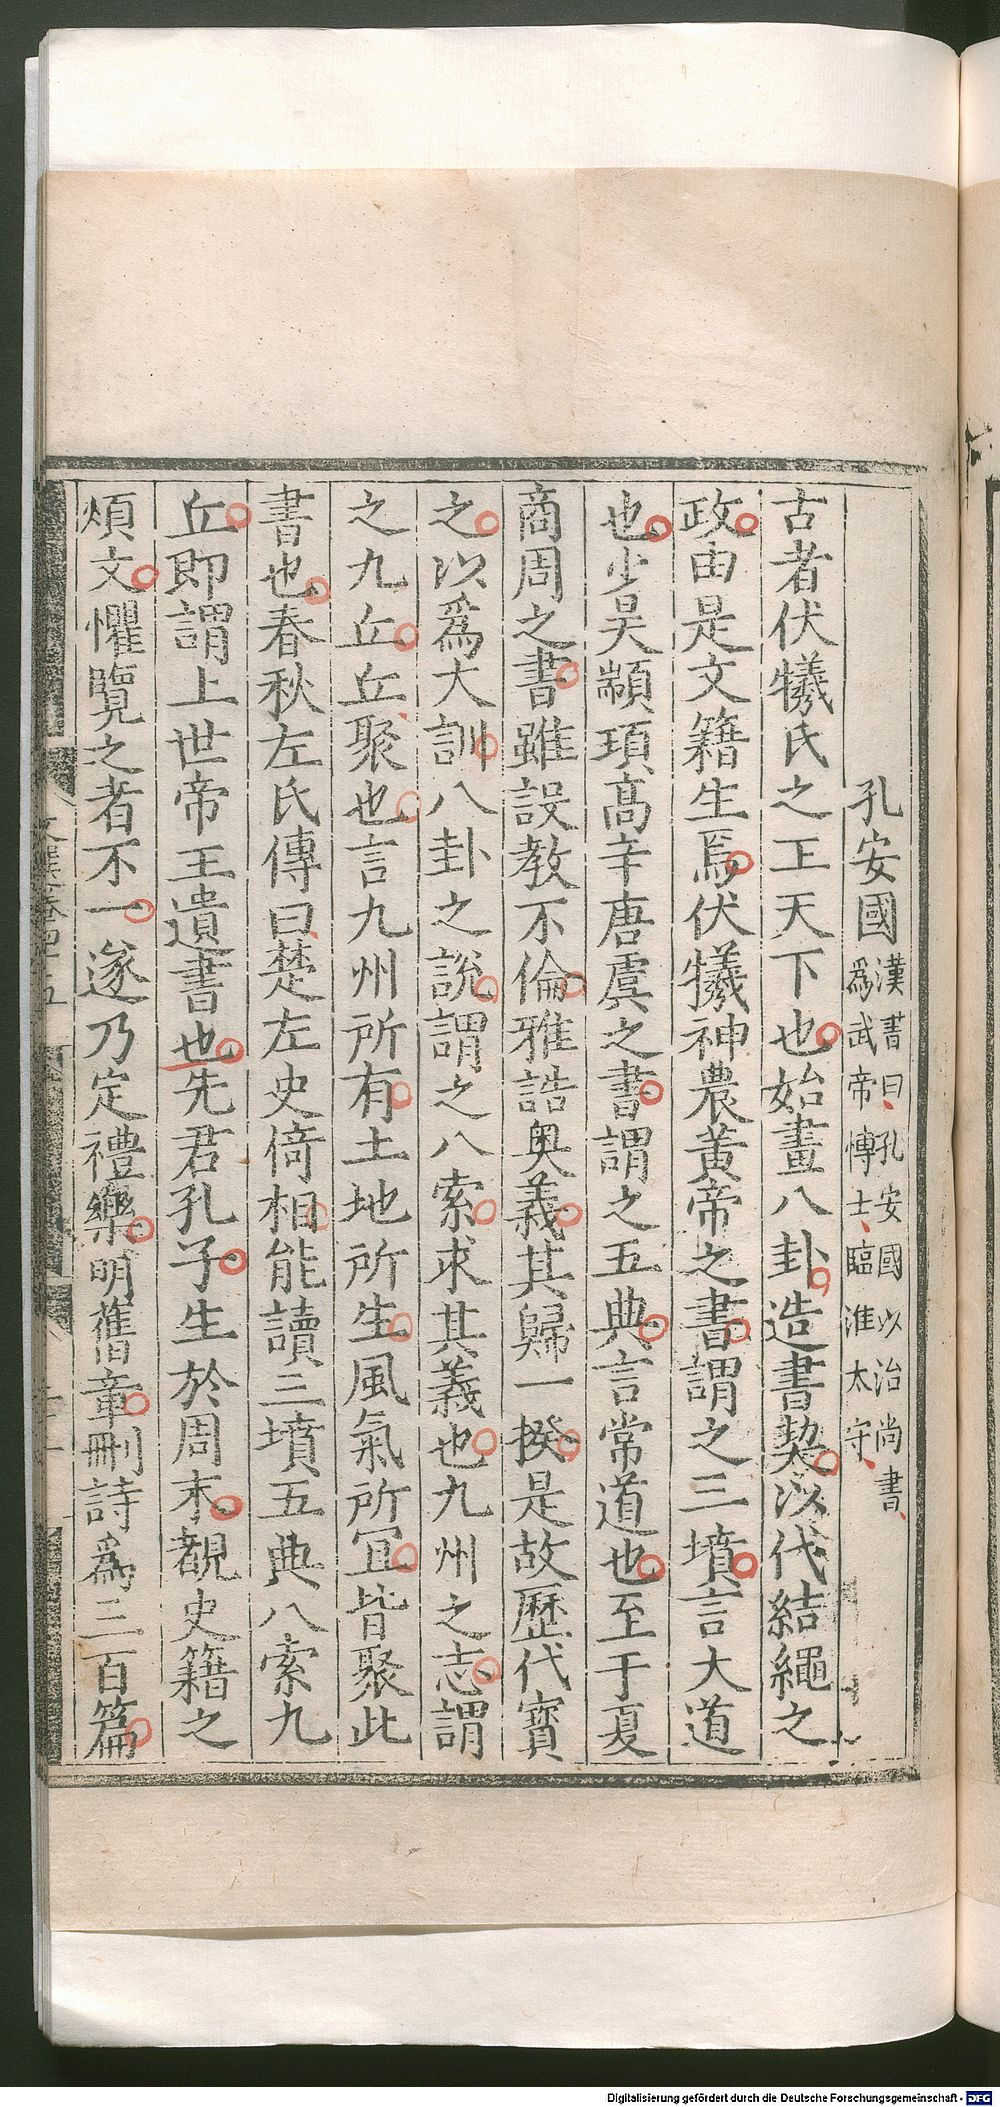 孔安國 漢書曰孔安國以治尚書
爲武帝博士臨淮太守
古者伏犧氏之王天下也始畫八卦造書契以代結繩之
政由是文籍生焉伏犧神農黃帝之書謂之三墳言大道
也少昊顓頊高辛唐虞之書謂之五典言常道也至于夏
商周之書雖設教不倫雅誥奧義其歸一揆是故歷代寳
之以爲大訓八卦之說謂之八索求其義也九州之志謂
之九丘丘聚也言九州所有土地所生風氣所宜皆聚此
書也春秋左氏傳曰楚左史倚相能讀三墳五典八索九
丘即謂上世帝王遺書也先君孔子生於周末覩史籍之
煩文懼覽之者不一遂乃定禮樂明舊章刪詩爲三百篇
Digitalisierung gefördert durch die Deutsche Forschungsgemeinschaft - DFG